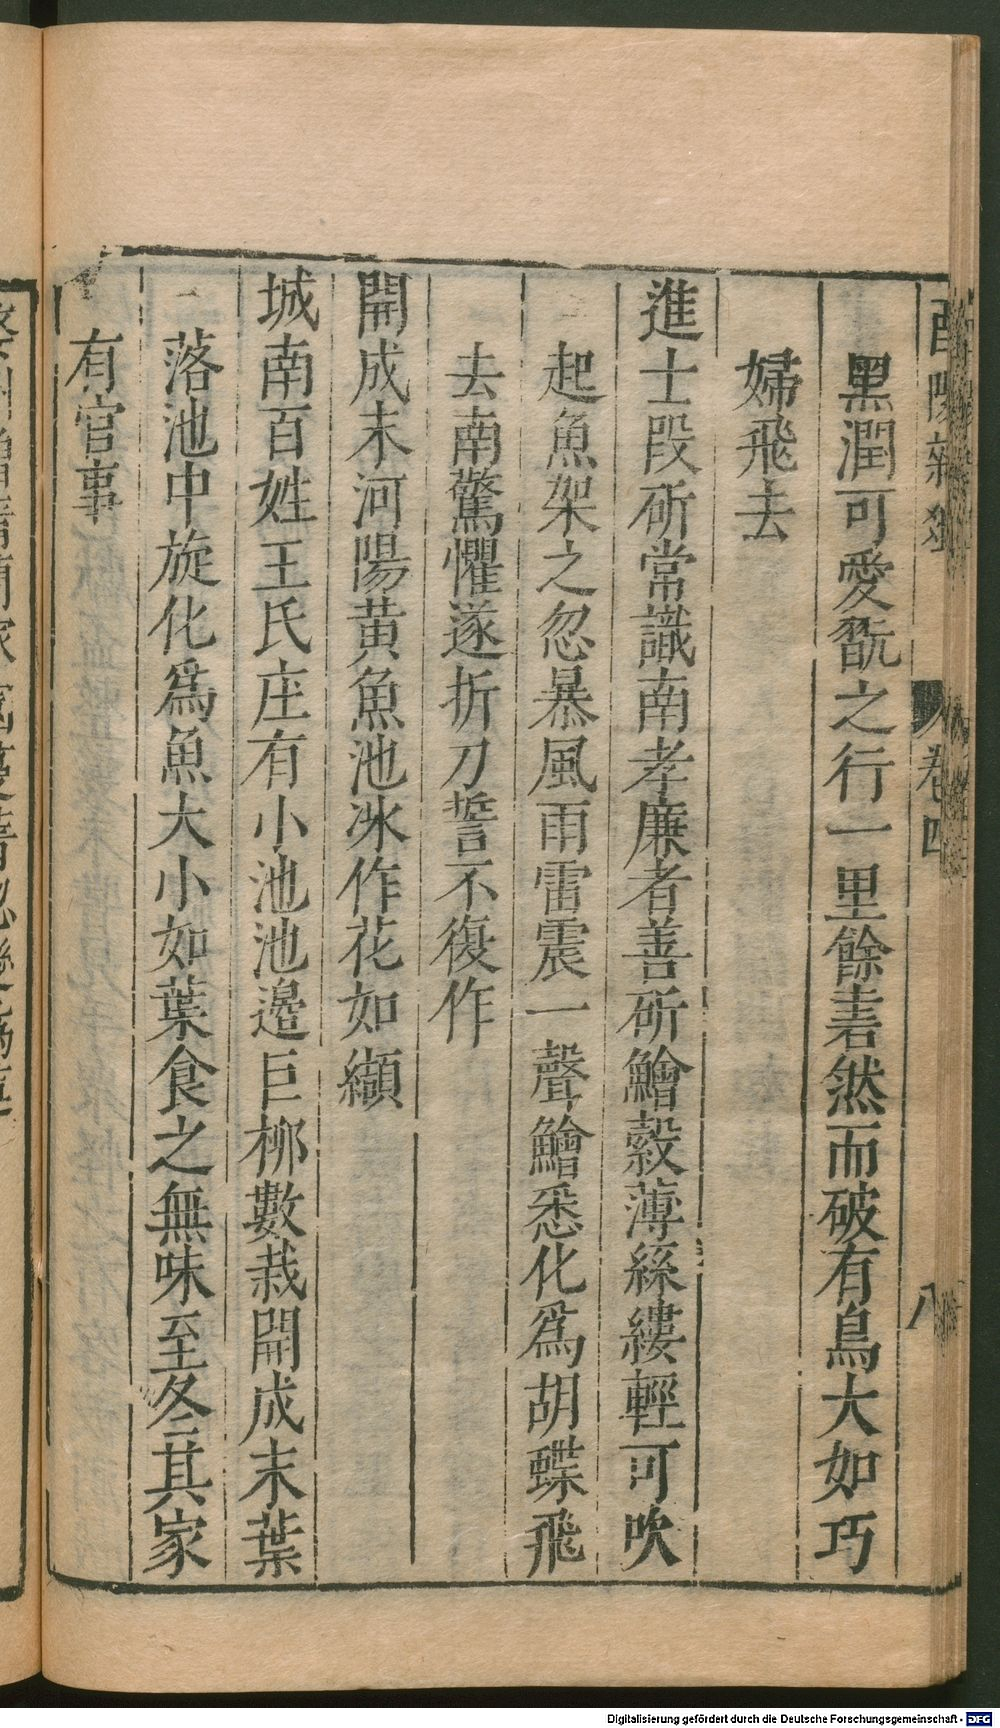 酉陽雜俎
卷四
八
黑潤可愛翫之行一里餘砉然而破有鳥大如巧
婦飛去
進士段斫常識南孝廉者善斫鱠縠薄絲縷輕可吹
起魚架之忽暴風雨雷震一聲鱠悉化爲胡蝶飛
去南驚懼遂折刀誓不復作
開成末河陽黄魚池冰作花如纈
城南百姓王氏庄有小池池邊巨柳數栽開成末葉
落池中旋化爲魚大小如葉食之無味至冬其家
有官事
Digitalisierung gefördert durch die Deutsche Forschungsgemeinschaft - DFG